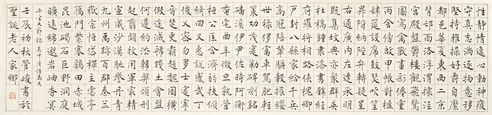 性靜情逸心動神疲
守真志滿逐物意移
堅持雅操好爵自縻
都邑華夏東西二京
背邙面洛浮渭據涇
宮殿盤鬱樓觀飛驚
圖寫禽獸畫彩仙靈
丙舍傍啟甲帳對楹
肆筵設席鼓瑟吹笙
升階納陛弁轉疑星
右通廣內左達承明
既集墳典亦聚群英
杜稿鍾隸漆書壁經
府羅將相路俠槐卿
戶封八縣家給千兵
高冠陪輦驅轂振纓
世祿侈富車駕肥輕
策功茂實勒碑刻銘
磻溪伊尹佐時阿衡
奄宅曲阜微旦孰營
桓公匡合濟弱扶傾
綺回漢惠說感武丁
俊乂密勿多士寔寧
晉楚更霸趙魏困橫
假途滅虢踐土會盟
何遵約法韓弊煩刑
起翦頗牧用軍最精
宣威沙漠馳譽丹青
九州禹跡百郡秦并
嶽宗恒岱禪主云亭
雁門紫塞雞田赤城
昆池碣石鉅野洞庭
曠遠綿邈巖岫杳冥
壬辰秋管峻書於
老人家鄉